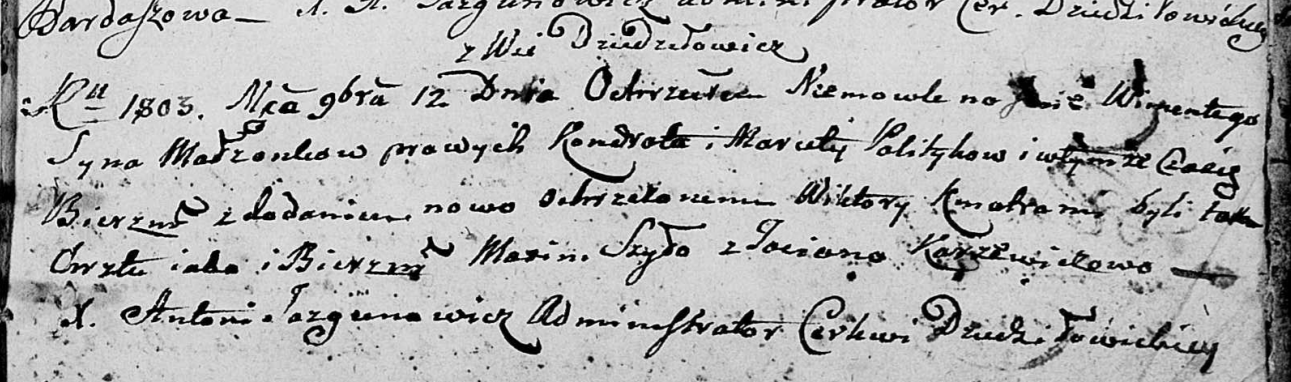 Bardaszowa — X. A. Jazgunowicz Administrator Cer. Dziedziłowickiey
z Wsi Dziedziłowicz
Rᵘ 1803. Mca 9bra 12 Dnia Ochrzciłem Niemowle na Jmie Wincentego
Syna Małżonkow prawych Kondrata i Marceli Politykow i w tymże Czasie
Bierzm z dodaniem nowo ochrzczonemu Wiktory Kmotrami byli tak
Chrztu iako i Bierzm Marcin Szyło z Tacianą Karzewiczowo —
X. Antoni Jazgunowicz Administrator Cerkwi Dziedziłowickiey